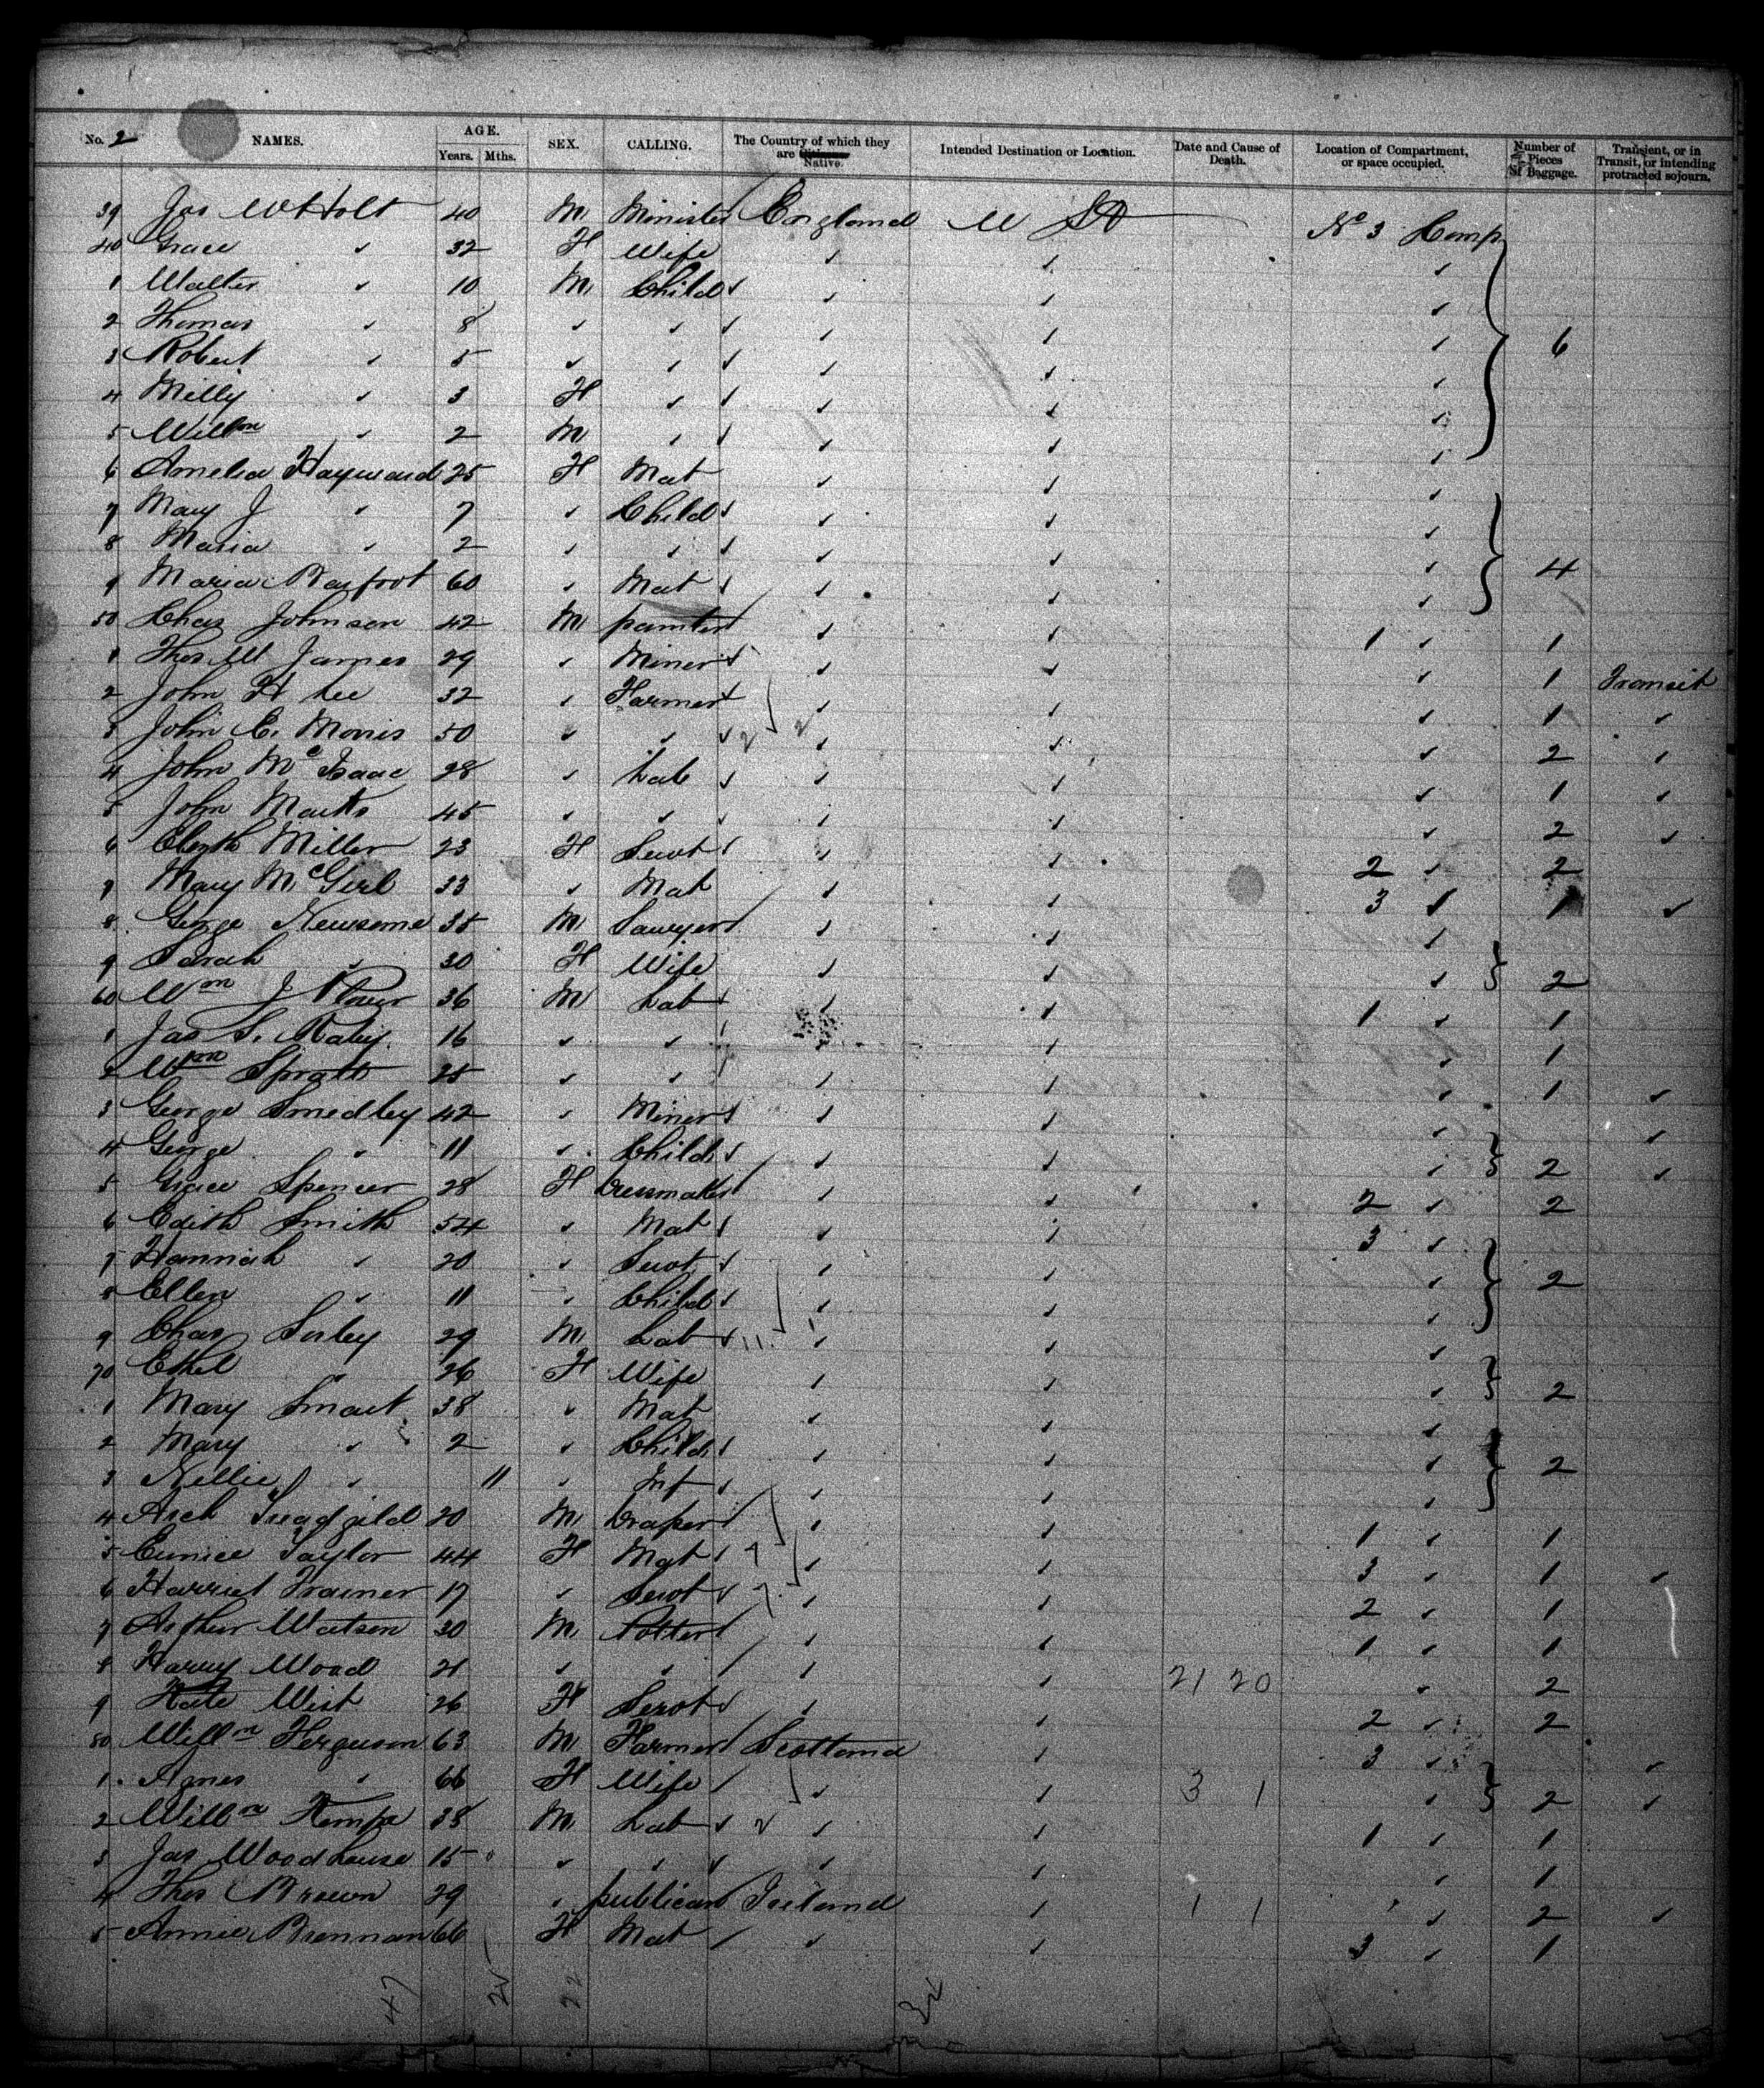 No. 2 NAMES. AGE. Years. Mths. SEX. CALLING. The Country of which they are Native. Intended Destination or Location. Date and Cause of Death. Location of Compartment, or space occupied. Number of Pieces of Baggage. Transient, or in Transit, or intending protracted sojourn.
39 Jas W Holt 40 M Minister England U St No 3 Comp
40 Grace " 32 F Wife " " "
1 Walter " 10 M Child " " "
2 Thomas " 8 " " " " " 6
3 Robert " 5 " " " " "
4 Milly " 3 F " " " "
5 Willm " 2 M " " " "
6 Amelia Hayward 25 F Mat " " "
7 Mary J " 7 " Child " " "
8 Maria " 2 " " " " " 4
9 Maria Barfoot 60 " Mat " " "
50 Chas Johnson 42 M painter " " 1 " 1
1 Thos W James 29 " Miner " " " 1 Transit
2 John H Lee 32 " Farmer " " " 1 "
3 John C. Morris 50 " " " " " 2 "
4 John McIsaac 28 " Lab " " " 1 "
5 John Marks 45 " " " " " 2 "
6 Elizth Miller 23 F Servt " " 2 " 2
7 Mary McGirl 33 " Mat " " 3 " 1 "
8 George Newsome 35 M Sawyer " " "
9 Sarah " 30 F Wife " " " 2
60 Wm J Plover 36 M Lab " " 1 " 1
1 Jas S. Raby 16 " " " " " 1
2 Wm Spratt 25 " " " " " 1 "
3 George Smedley 42 " Miner " " " "
4 George " 11 " Child " " " 2 "
5 Grace Spencer 28 F Dressmaker " " 2 " 2
6 Edith Smith 54 " Mat " " 3 "
7 Hannah " 20 " Servt " " " 2
8 Ellen " 11 " Child " " "
9 Chas Sorley 29 M Lab " " "
70 Ethel " 26 F Wife " " " 2
1 Mary Smart 38 " Mat " " "
2 Mary " 2 " Child " " " 2
3 Nellie " 11 " Inf " " "
4 Arch Treadgold 20 M Draper " " 1 " 1
5 Eunice Taylor 44 F Mat " " 3 " 1 "
6 Harriet Trainer 17 " Servt " " 2 " 1
7 Arthur Watson 30 M Potter " " 1 " 1
8 Harry Wood 21 " " " " 21 20 " 2
9 Kate West 26 F Servt " " 2 " 2
80 Willm Ferguson 63 M Farmer Scotland " 3 " "
1 Agnes " 66 F Wife " " 3 1 " 2 "
2 Willm Kemp 38 M Lab " " 1 " 1
3 Jas Woodhouse 15 " " " " " 1
4 Thos Brown 29 " publican Ireland " 1 1 " " 2 "
5 Annie Brennan 66 F Mat " " 3 " 1
47 25 22